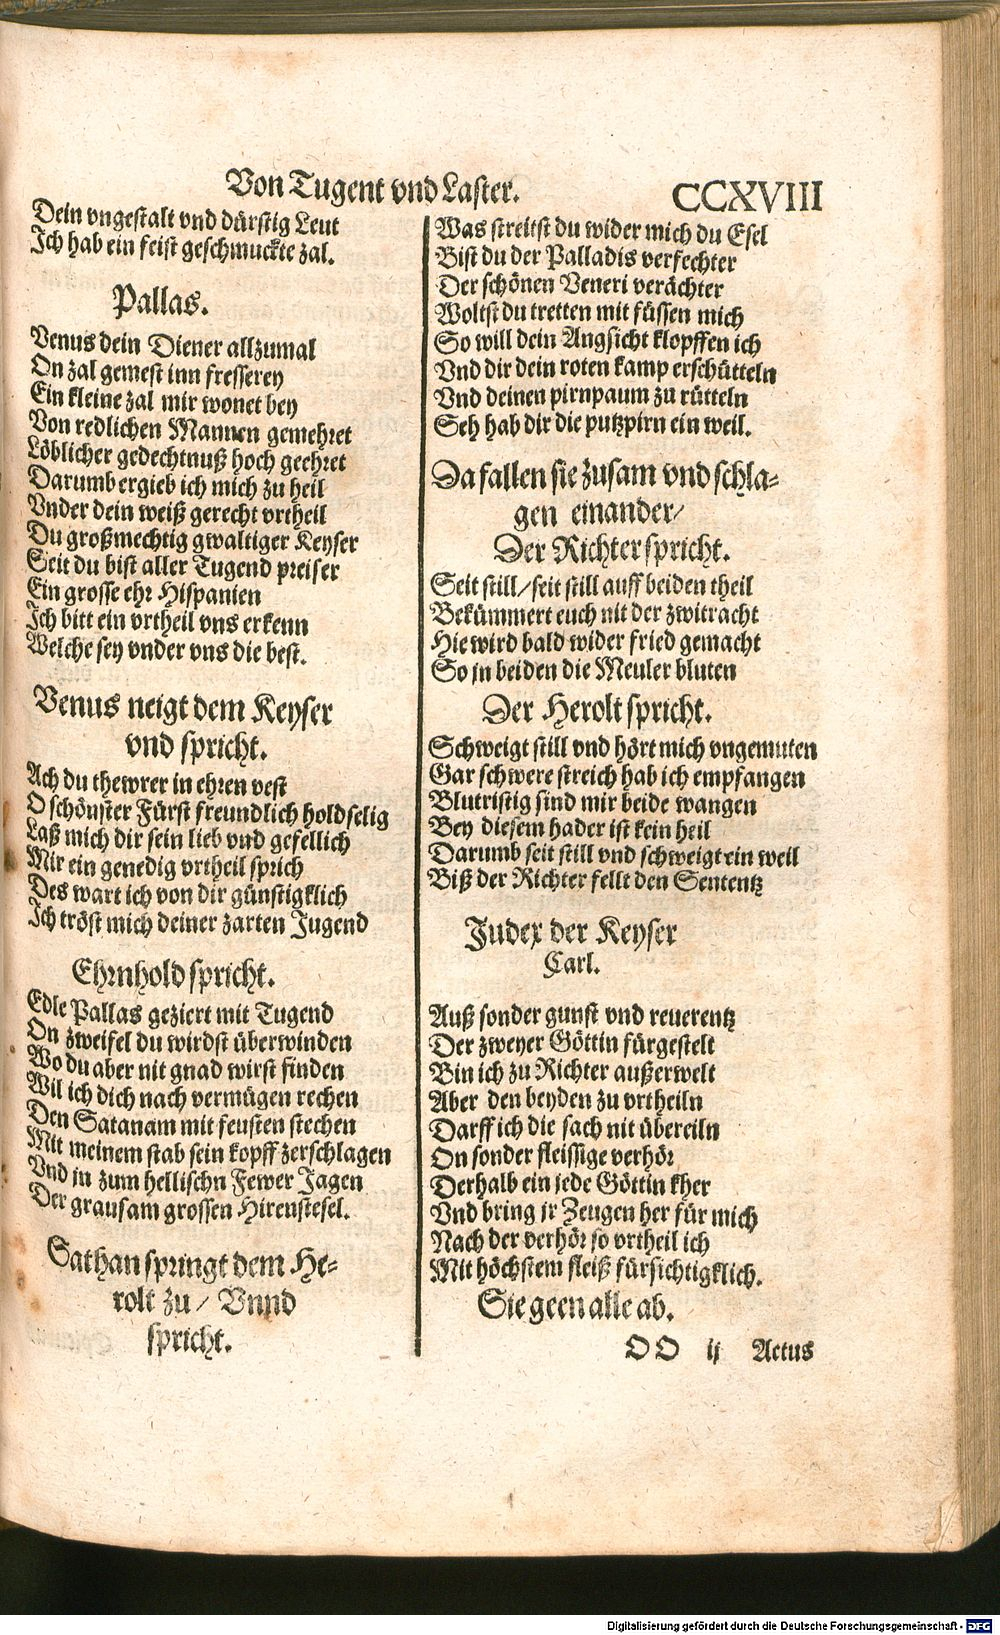 Von Tugent vnd Laster.
CCXVIII
Dein vngestalt vnd dürstig Leut
Ich hab ein feist geschmuckte zal.
Pallas.
Venus dein Diener allzumal
On zal gemest inn fresserey
Ein kleine zal mir wonet bey
Von redlichen Mannen gemehret
Löblicher gedechtnuß hoch geehret
Darumb ergieb ich mich zu heil
Vnder dein weiß gerecht vrtheil
Du großmechtig gwaltiger Keyser
Seit du bist aller Tugend preiser
Ein grosse ehr Hispanien
Ich bitt ein vrtheil vns erkenn
Welche sey vnder vns die best.
Venus neigt dem Keyser
vnd spricht.
Ach du thewrer in ehren vest
O schönster Fürst freundlich holdselig
Laß mich dir sein lieb vnd gefellich
Mir ein genedig vrtheil sprich
Des wart ich von dir günstigklich
Ich tröst mich deiner zarten Jugend
Ehrnhold spricht.
Edle Pallas geziert mit Tugend
On zweifel du wirdst überwinden
Wo du aber nit gnad wirst finden
Wil ich dich nach vermügen rechen
Den Satanam mit feusten stechen
Mit meinem stab sein kopff zerschlagen
Vnd jn zum hellischn Fewer Jagen
Der grausam grossen Hirenstesel.
Sathan springt dem He-
rolt zu / Vnnd
spricht.
Was streitst du wider mich du Esel
Bist du der Palladis verfechter
Der schönen Veneri verächter
Woltst du tretten mit füssen mich
So will dein Angsicht klopffen ich
Vnd dir dein roten kamp erschütteln
Vnd deinen pirnpaum zu rütteln
Seh hab dir die putzpirn ein weil.
Da fallen sie zusam vnd schla-
gen einander /
Der Richter spricht.
Seit still / seit still auff beiden theil
Bekümmert euch nit der zwitracht
Hie wird bald wider fried gemacht
So jn beiden die Meuler bluten
Der Herolt spricht.
Schweigt still vnd hört mich vngemuten
Gar schwere streich hab ich empfangen
Blutristig sind mir beide wangen
Bey diesem hader ist kein heil
Darumb seit still vnd schweigt ein weil
Biß der Richter fellt den Sententz
Judex der Keyser
Carl.
Auß sonder gunst vnd reuerentz
Der zweyer Göttin fürgestelt
Bin ich zu Richter außerwelt
Aber den beyden zu vrtheiln
Darff ich die sach nit übereiln
On sonder fleissige verhör
Derhalb ein jede Göttin kher
Vnd bring jr Zeugen her für mich
Nach der verhör so vrtheil ich
Mit höchstem fleiß fürsichtigklich.
Sie geen alle ab.
OO ij Actus
Digitalisierung gefördert durch die Deutsche Forschungsgemeinschaft - DFG